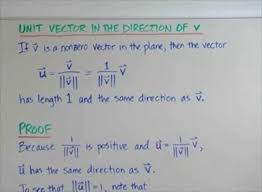 UNIT VECTOR IN THE DIRECTION OF V
If v⃗ is a nonzero vector in the plane, then the vector
u⃗ = v⃗ / ||v⃗|| = 1 / ||v⃗|| v⃗
has length 1 and the same direction as v⃗.
PROOF
Because 1 / ||v⃗|| is positive and u⃗ = 1 / ||v⃗|| v⃗,
u⃗ has the same direction as v⃗.
To see that ||u⃗|| = 1, note that